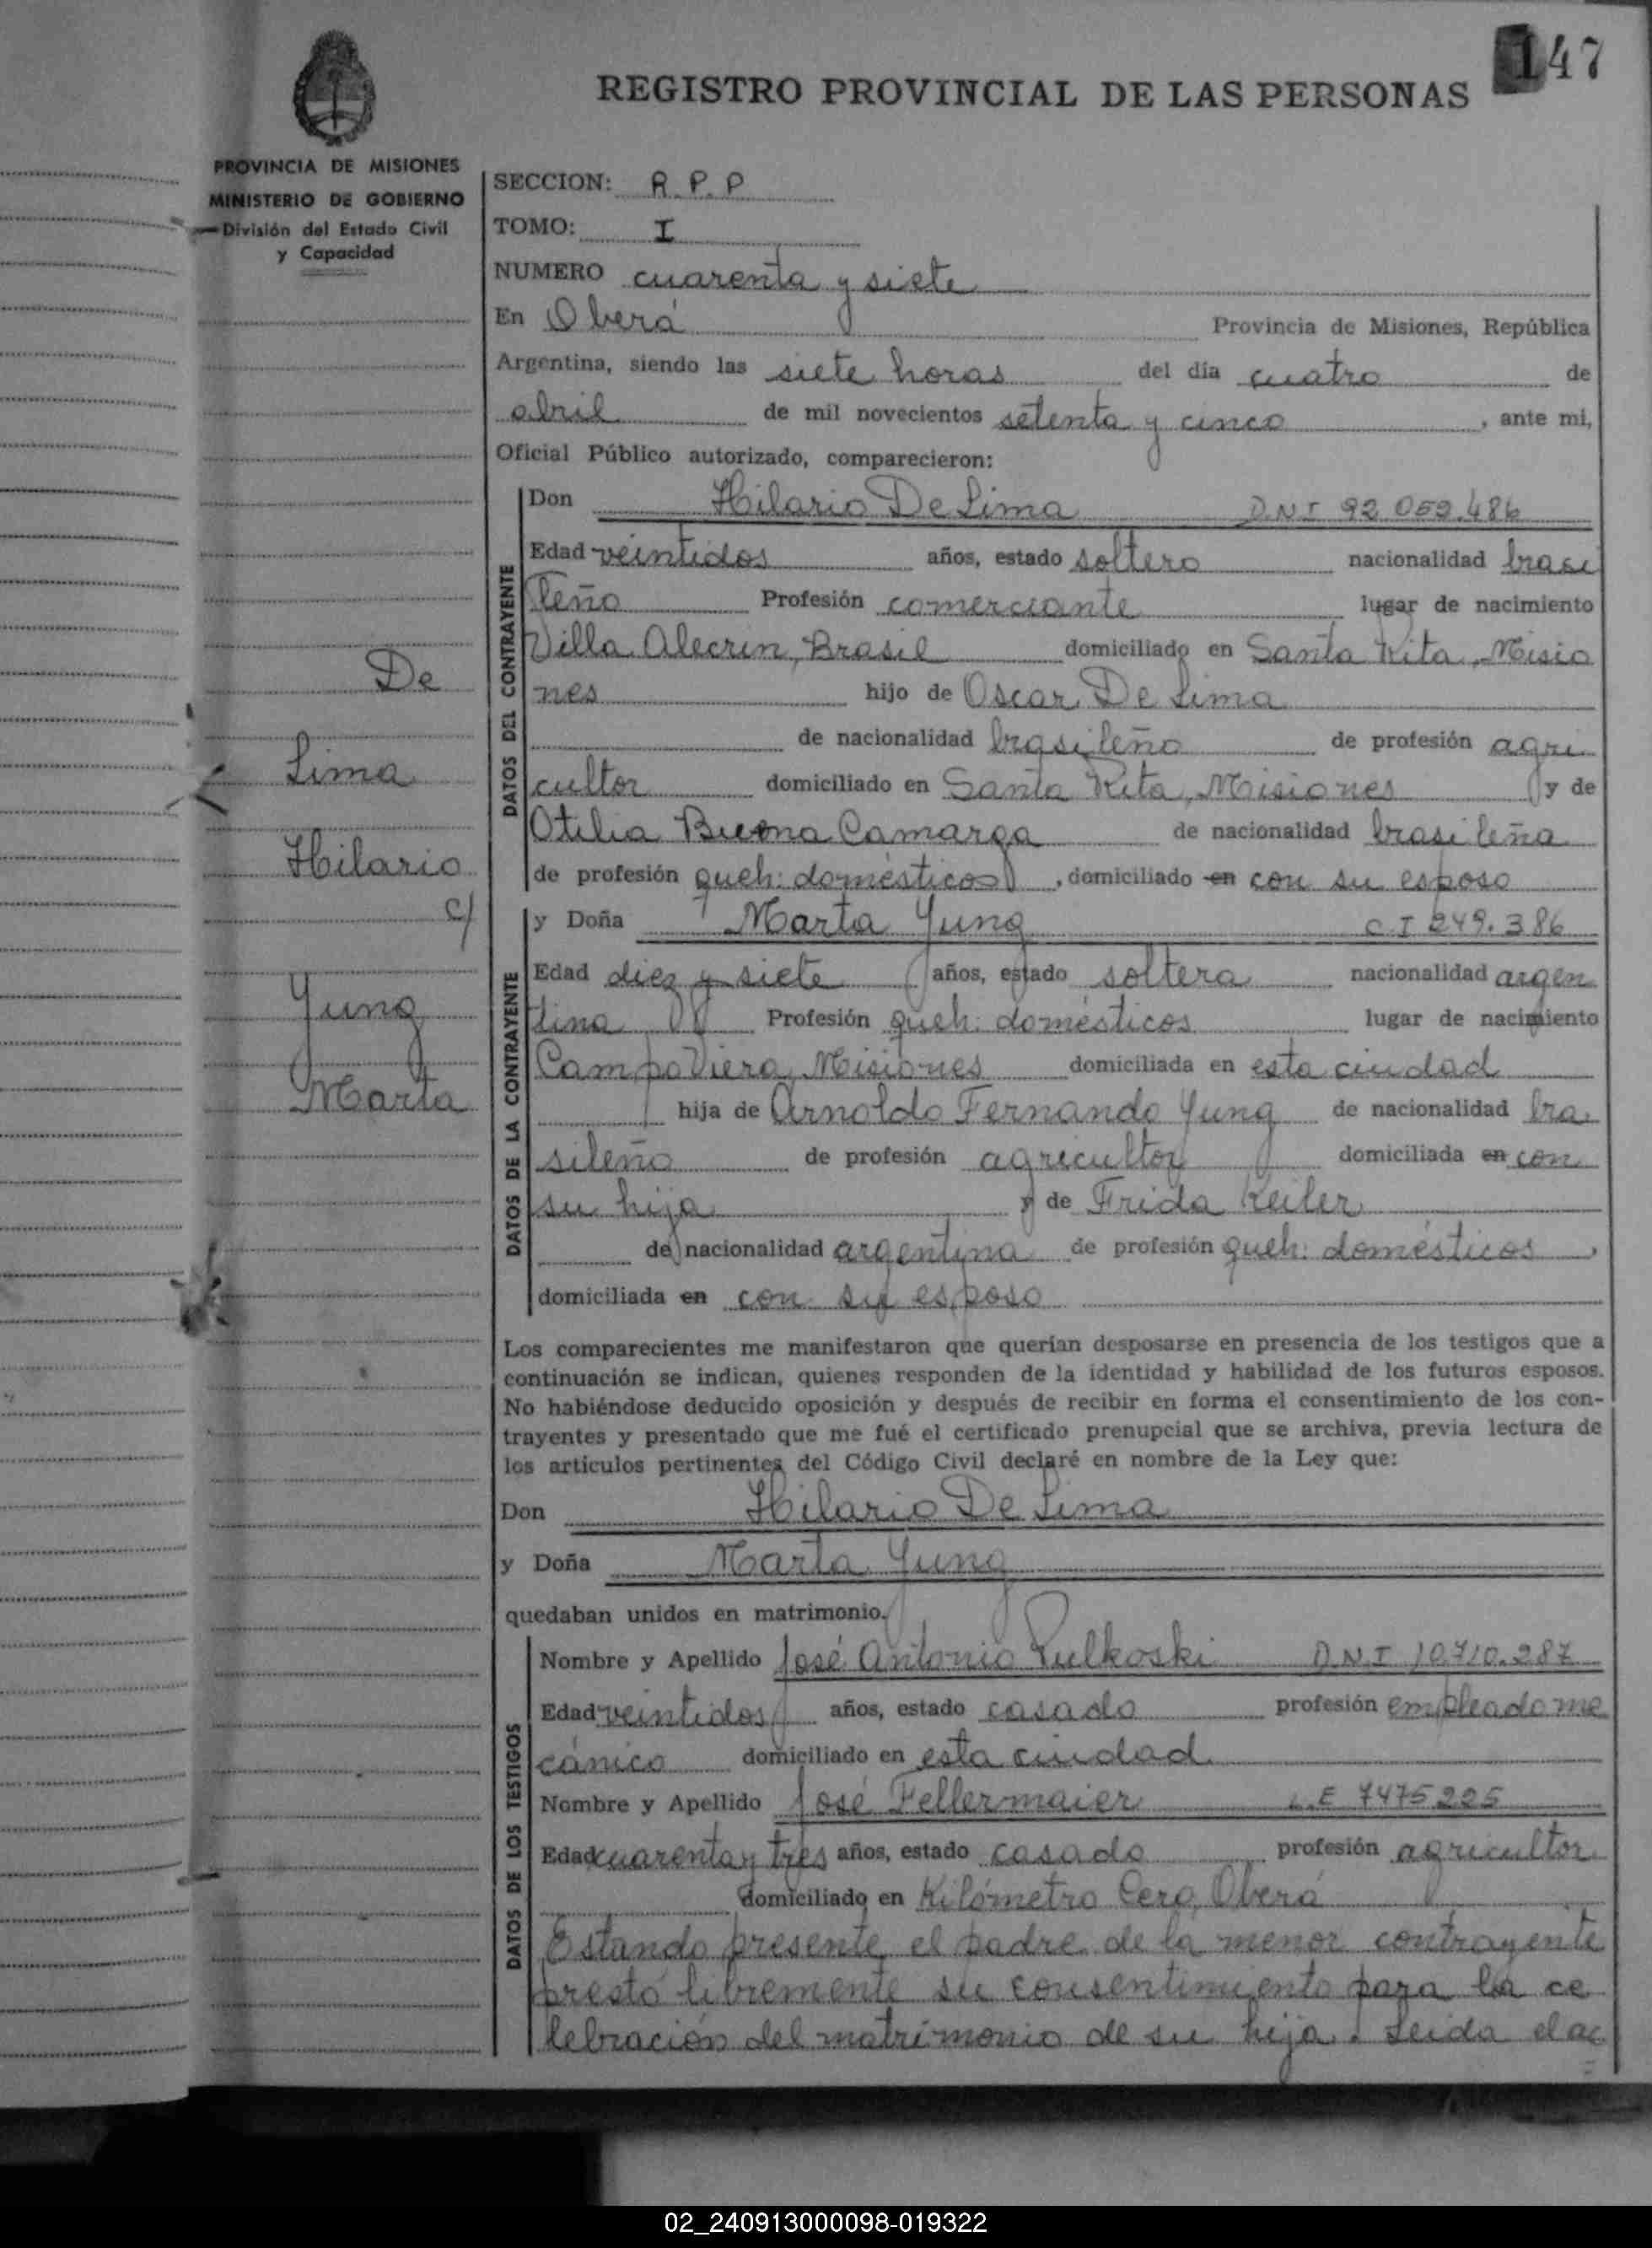 147
REGISTRO PROVINCIAL DE LAS PERSONAS
PROVINCIA DE MISIONES
MINISTERIO DE GOBIERNO
División del Estado Civil
y Capacidad
De
Lima
Hilario
c/
Yung
Marta
SECCION: R.P.P
TOMO: I
NUMERO cuarenta y siete
En Oberá Provincia de Misiones, República
Argentina, siendo las siete horas del día cuatro de
abril de mil novecientos setenta y cinco, ante mi,
Oficial Público autorizado, comparecieron:
DATOS DEL CONTRAYENTE
Don Hilario De Lima D.N.I 92.052.486
Edad veintidos años, estado soltero nacionalidad brasi
leño Profesión comerciante lugar de nacimiento
Villa Alecrin, Brasil domiciliado en Santa Rita, Misio
nes hijo de Oscar De Lima
de nacionalidad brasileño de profesión agri
cultor domiciliado en Santa Rita, Misiones y de
Otilia Buena Camarga de nacionalidad brasileña
de profesión queh: domésticos, domiciliado en con su esposo
DATOS DE LA CONTRAYENTE
y Doña Marta Yung C.I 249.386
Edad diez y siete años, estado soltera nacionalidad argen
tina Profesión queh: domésticos lugar de nacimiento
Campo Viera, Misiones domiciliada en esta ciudad
hija de Arnoldo Fernando Yung de nacionalidad bra
sileño de profesión agricultor domiciliada en con
su hija y de Frida Keiler
de nacionalidad argentina de profesión queh: domésticos,
domiciliada en con su esposo
Los comparecientes me manifestaron que querían desposarse en presencia de los testigos que a
continuación se indican, quienes responden de la identidad y habilidad de los futuros esposos.
No habiéndose deducido oposición y después de recibir en forma el consentimiento de los con-
trayentes y presentado que me fué el certificado prenupcial que se archiva, previa lectura de
los artículos pertinentes del Código Civil declaré en nombre de la Ley que:
Don Hilario De Lima
y Doña Marta Yung
quedaban unidos en matrimonio.
DATOS DE LOS TESTIGOS
Nombre y Apellido José Antonio Pulkoski D.N.I 10.710.287
Edad veintidos años, estado casado profesión empleado me
cánico domiciliado en esta ciudad
Nombre y Apellido José Fellermaier L.E 7475225
Edad cuarenta y tres años, estado casado profesión agricultor
domiciliado en Kilómetro Cero, Oberá
Estando presente el padre de la menor contrayente
prestó libremente su consentimiento para la ce
lebración del matrimonio de su hija. Leida el ac
02_240913000098-019322